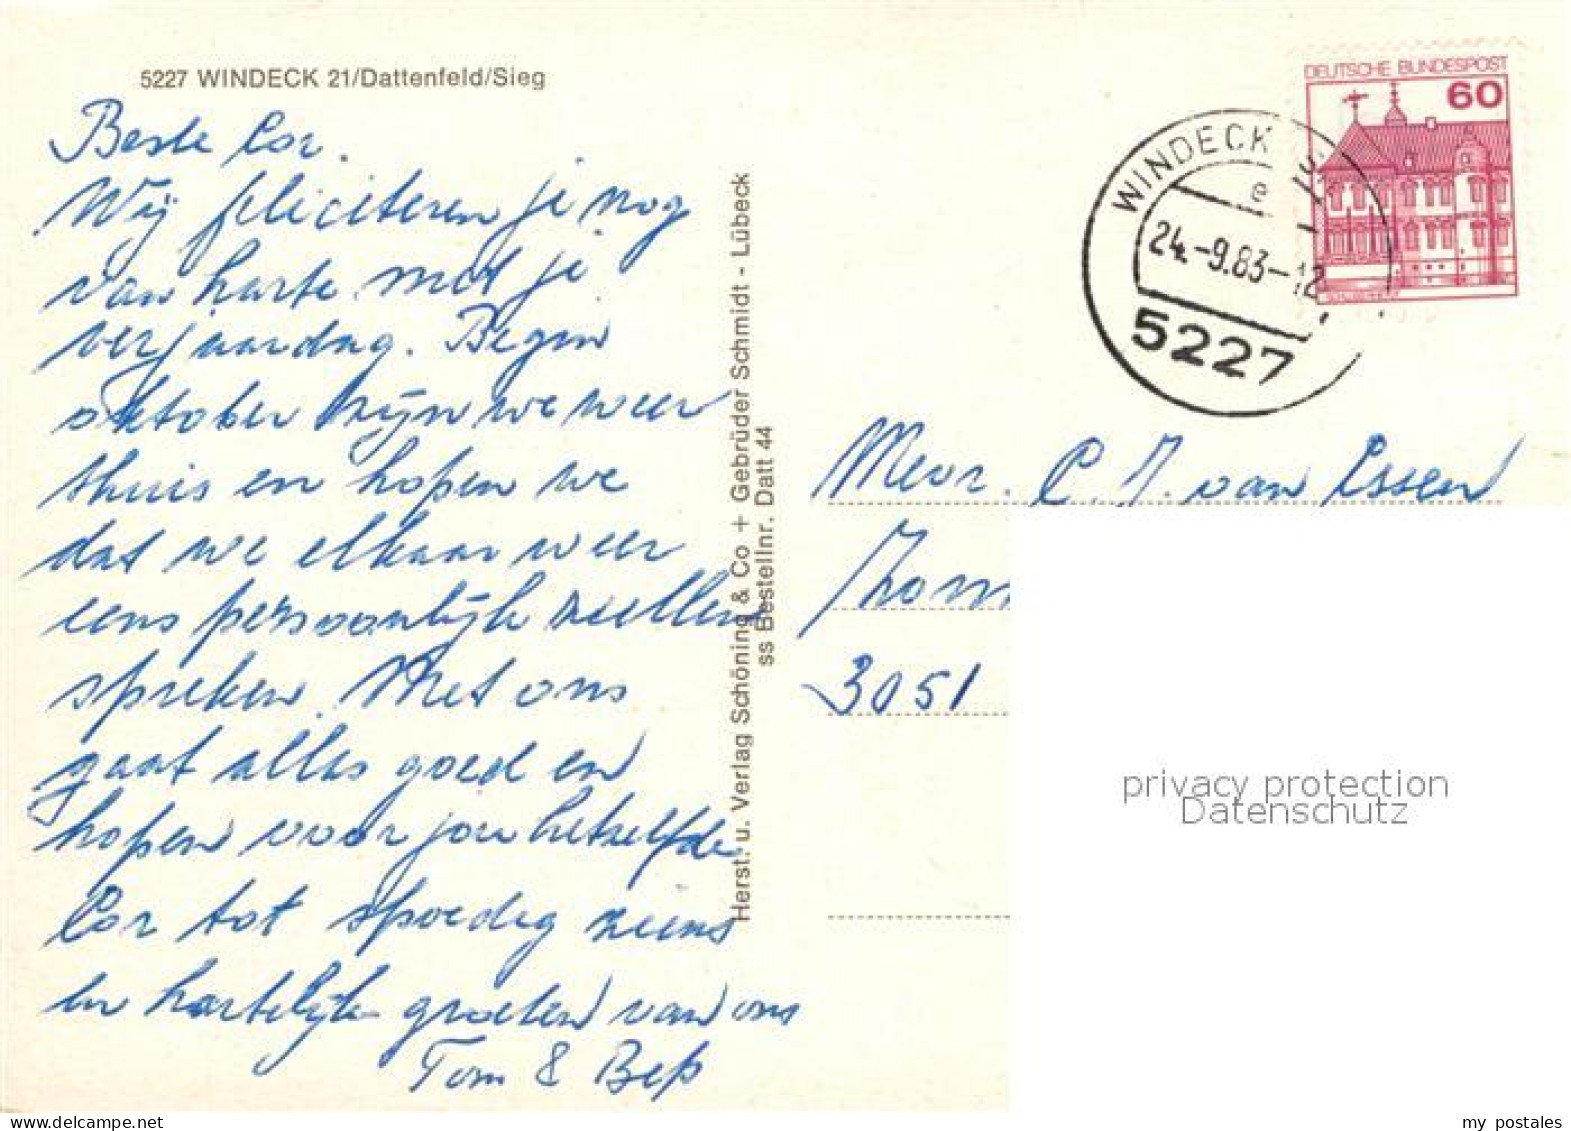 5227 WINDECK 21/Dattenfeld/Sieg
Beste Cor.
Wij feliciteren je nog
van harte met je
verjaardag. Begin
oktober zijn we weer
thuis en hopen we
dat we elkaar weer
eens persoonlijk zullen
spreken. Met ons
gaat alles goed en
hopen voor jou hetzelfde
Cor tot spoedig ziens
en hartelijke groeten van ons
Tom & Bep
Herst. u. Verlag Schöning & Co + Gebrüder Schmidt - Lübeck
ss Bestellnr. Datt 44
DEUTSCHE BUNDESPOST
60
WINDECK
e
24.-9.83-12
5227
Mevr. C. J. van Essen
3051
privacy protection
Datenschutz
my postales